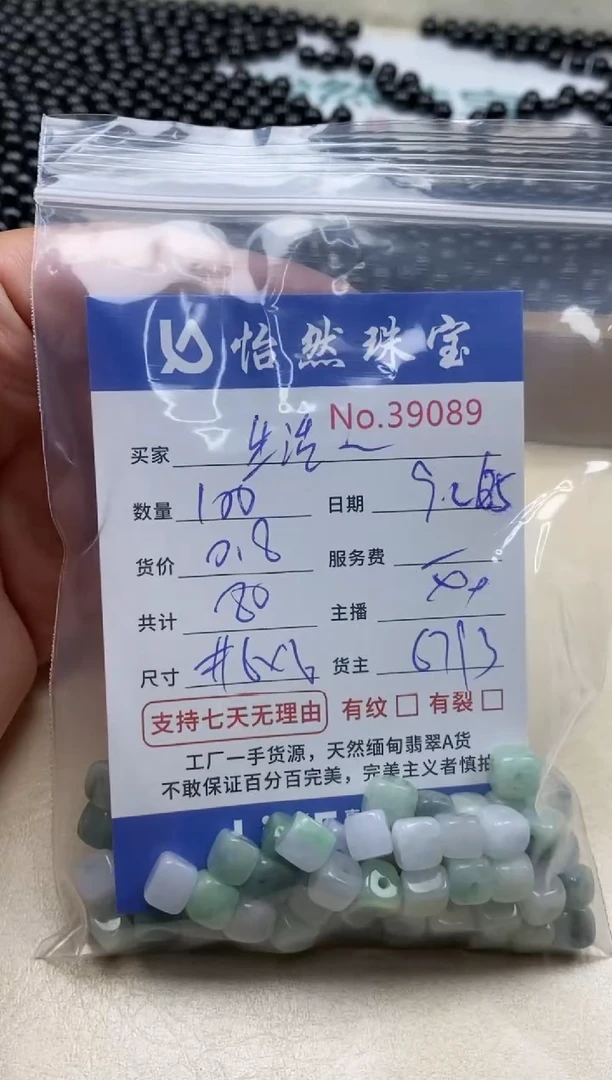 怡然珠宝
No.39089
买家
数量 100 日期
货价 0.8 服务费
共计 80 主播
尺寸 #6x6 货主 6713
支持七天无理由 有纹 □ 有裂 □
工厂一手货源，天然缅甸翡翠A货
不敢保证百分百完美，完美主义者慎拍